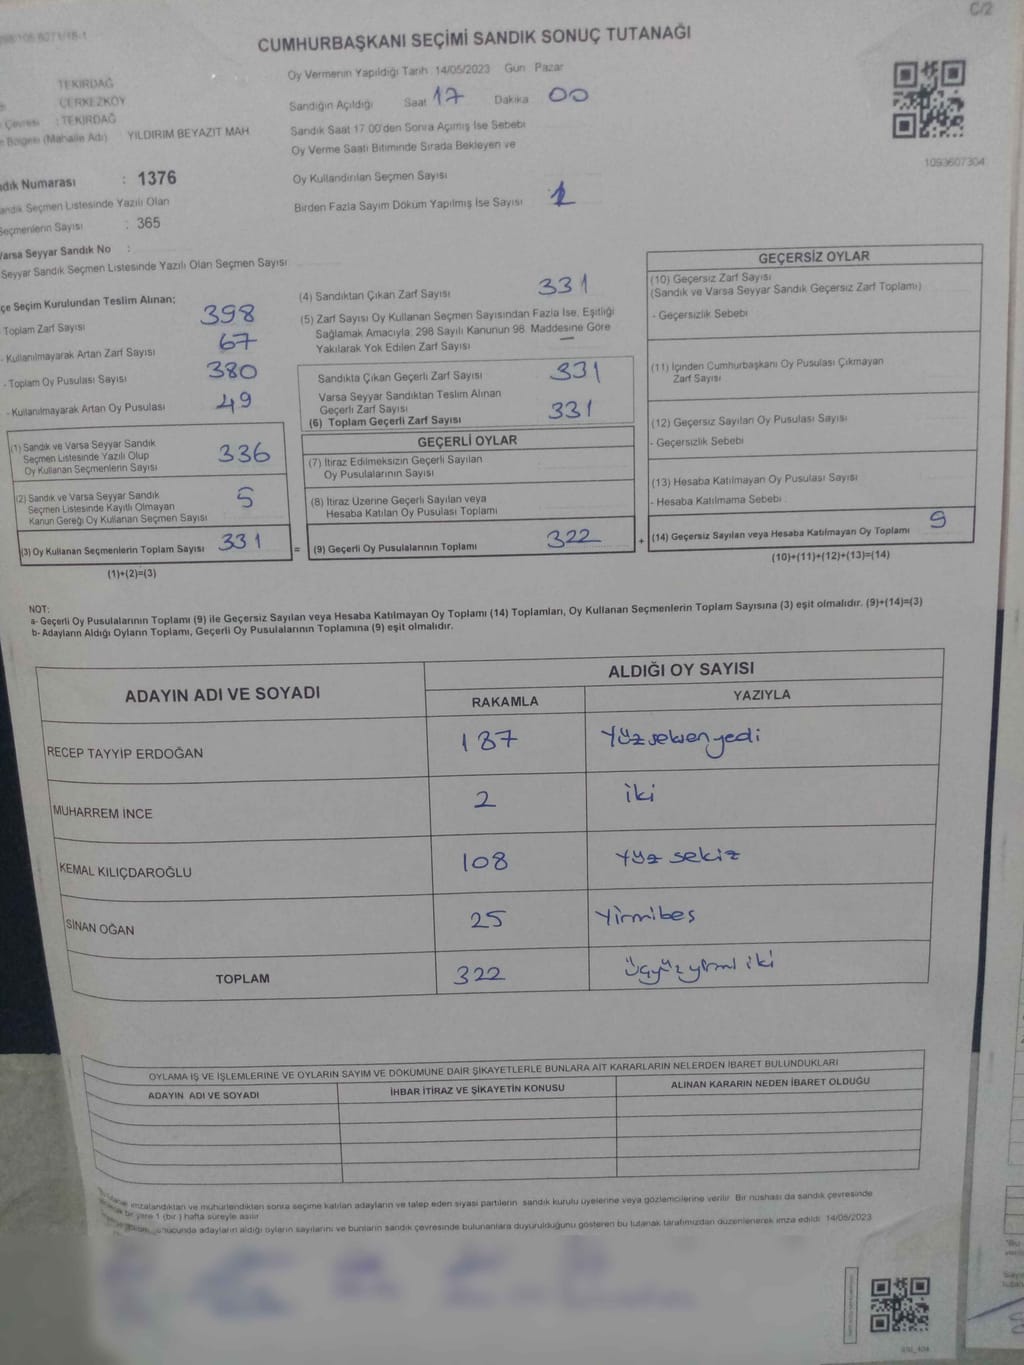 C/2
CUMHURBAŞKANI SEÇİMİ SANDIK SONUÇ TUTANAĞI
TEKİRDAĞ
ÇERKEZKÖY
Çevresi : TEKİRDAĞ
Bölgesi (Mahalle Adı) YILDIRIM BEYAZIT MAH
Numarası : 1376
Sandık Seçmen Listesinde Yazılı Olan
Seçmenlerin Sayısı : 365
Varsa Seyyar Sandık No :
Seyyar Sandık Seçmen Listesinde Yazılı Olan Seçmen Sayısı
Oy Vermenin Yapıldığı Tarih : 14/05/2023 Gün : Pazar
Sandığın Açıldığı Saat 17 Dakika 00
Sandık Saat 17.00'den Sonra Açımış İse Sebebi
Oy Verme Saati Bitiminde Sırada Bekleyen ve
Oy Kullandırılan Seçmen Sayısı
Birden Fazla Sayım Döküm Yapılmış İse Sayısı 1
1093607304
Seçim Kurulundan Teslim Alınan;
Toplam Zarf Sayısı 398
- Kullanılmayarak Artan Zarf Sayısı 67
- Toplam Oy Pusulası Sayısı 380
- Kullanılmayarak Artan Oy Pusulası 49
(1) Sandık ve Varsa Seyyar Sandık
Seçmen Listesinde Yazılı Olup
Oy Kullanan Seçmenlerin Sayısı 336
(2) Sandık ve Varsa Seyyar Sandık
Seçmen Listesinde Kayıtlı Olmayan
Kanun Gereği Oy Kullanan Seçmen Sayısı 5
(3) Oy Kullanan Seçmenlerin Toplam Sayısı 331
(1)+(2)=(3)
(4) Sandıktan Çıkan Zarf Sayısı 331
(5) Zarf Sayısı Oy Kullanan Seçmen Sayısından Fazla İse, Eşitliği
Sağlamak Amacıyla, 298 Sayılı Kanunun 98. Maddesine Göre
Yakılarak Yok Edilen Zarf Sayısı —
Sandıkta Çıkan Geçerli Zarf Sayısı 331
Varsa Seyyar Sandıktan Teslim Alınan
Geçerli Zarf Sayısı
(6) Toplam Geçerli Zarf Sayısı 331
GEÇERLİ OYLAR
(7) İtiraz Edilmeksizin Geçerli Sayılan
Oy Pusulalarının Sayısı
(8) İtiraz Üzerine Geçerli Sayılan veya
Hesaba Katılan Oy Pusulası Toplamı
= (9) Geçerli Oy Pusulalarının Toplamı 322
GEÇERSİZ OYLAR
(10) Geçersiz Zarf Sayısı
(Sandık ve Varsa Seyyar Sandık Geçersiz Zarf Toplamı)
- Geçersizlik Sebebi
(11) İçinden Cumhurbaşkanı Oy Pusulası Çıkmayan
Zarf Sayısı
(12) Geçersiz Sayılan Oy Pusulası Sayısı
- Geçersizlik Sebebi
(13) Hesaba Katılmayan Oy Pusulası Sayısı
- Hesaba Katılmama Sebebi
+ (14) Geçersiz Sayılan veya Hesaba Katılmayan Oy Toplamı 9
(10)+(11)+(12)+(13)=(14)
NOT:
a- Geçerli Oy Pusulalarının Toplamı (9) ile Geçersiz Sayılan veya Hesaba Katılmayan Oy Toplamı (14) Toplamları, Oy Kullanan Seçmenlerin Toplam Sayısına (3) eşit olmalıdır. (9)+(14)=(3)
b- Adayların Aldığı Oyların Toplamı, Geçerli Oy Pusulalarının Toplamına (9) eşit olmalıdır.
ADAYIN ADI VE SOYADI ALDIĞI OY SAYISI
RAKAMLA YAZIYLA
RECEP TAYYİP ERDOĞAN 187 Yüz seksen yedi
MUHARREM İNCE 2 iki
KEMAL KILIÇDAROĞLU 108 Yüz sekiz
SİNAN OĞAN 25 Yirmibes
TOPLAM 322 Üçyüz yirmi iki
OYLAMA İŞ VE İŞLEMLERİNE VE OYLARIN SAYIM VE DÖKÜMÜNE DAİR ŞİKAYETLERLE BUNLARA AİT KARARLARIN NELERDEN İBARET BULUNDUKLARI
ADAYIN ADI VE SOYADI İHBAR İTİRAZ VE ŞİKAYETİN KONUSU ALINAN KARARIN NEDEN İBARET OLDUĞU
imzalandıktan ve mühürlendikten sonra seçime katılan adayların ve talep eden siyasi partilerin sandık kurulu üyelerine veya gözlemcilerine verilir. Bir nüshası da sandık çevresinde
bir yere 1 (bir) hafta süreyle asılır.
adayların aldığı oyların sayılarını ve bunların sandık çevresinde bulunanlara duyurulduğunu gösteren bu tutanak tarafımızdan düzenlenerek imza edildi. 14/05/2023